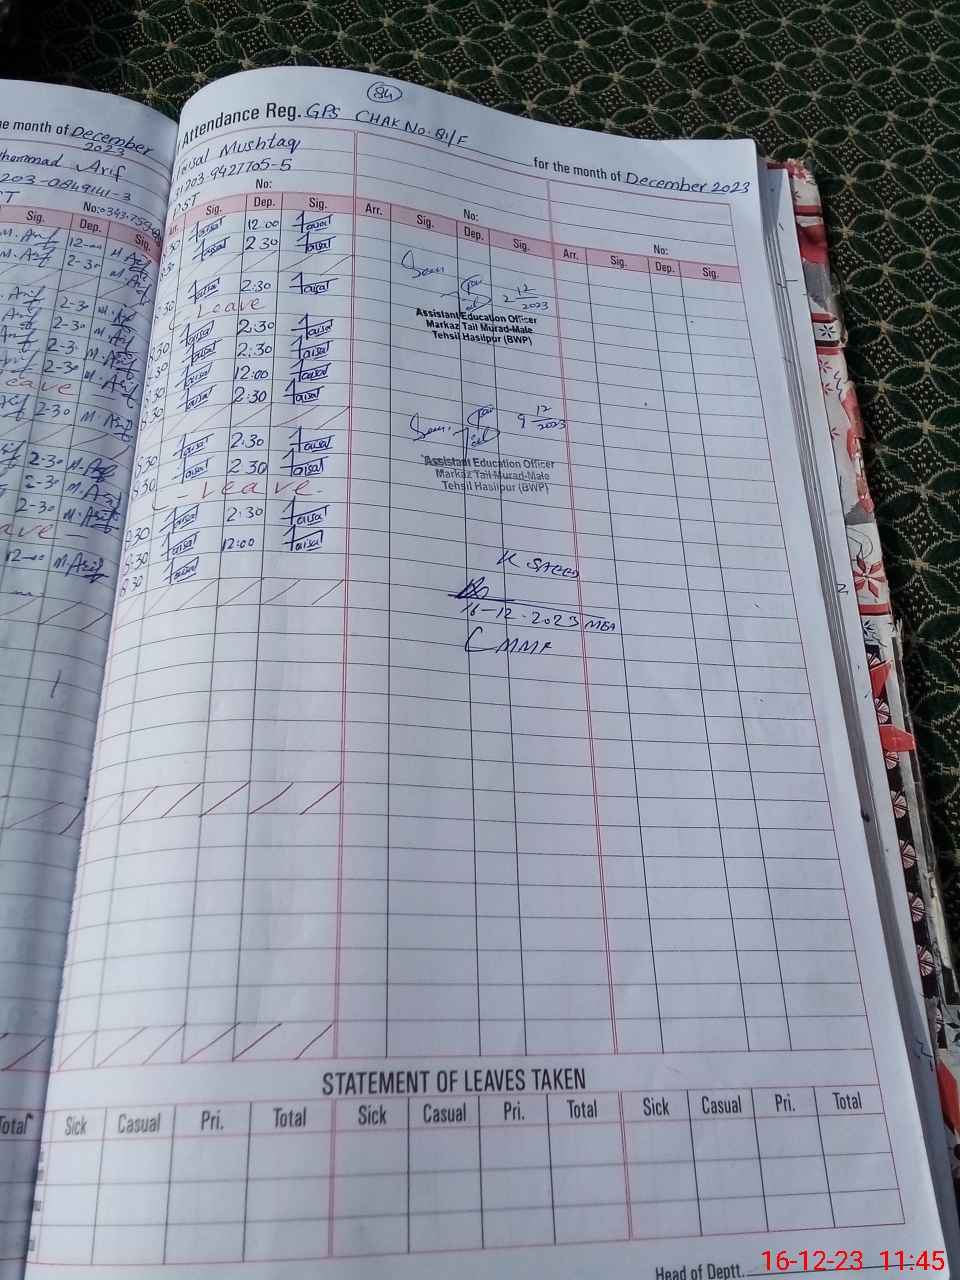 84
Attendance Reg. GPS CHAK No. 81/F for the month of December 2023
the month of December 2023
Muhammad Arif
203-0849141-3
Faisal Mushtaq
31203-9427705-5
PST
No: No: No:
Sig. Dep. Sig.
Arr. Sig. Dep. Sig. Arr. Sig. Dep. Sig. Arr. Sig. Dep. Sig.
M. Arif 12-00 M. Arif
M. Arif 2-30 M. Arif
Arif 2-30 M. Arif
Arif 2-30 M. Arif
Arif 2-3 M. Arif
Arif 2-30 M. Arif
Leave
Arif 2-30 M. Arif
2-30 M. Arif
2-30 M. Arif
2-30 M. Arif
Leave
12-00 M. Arif
Faisal 12.00 Faisal
Faisal 2.30 Faisal
8:30 Faisal 2:30 Faisal
Leave
8:30 Faisal 2:30 Faisal
8:30 Faisal 2:30 Faisal
8:30 Faisal 12:00 Faisal
8:30 Faisal 2:30 Faisal
8:30 Faisal 2:30 Faisal
8:30 Faisal 2 30 Faisal
- Leave -
8:30 Faisal 2:30 Faisal
8:30 Faisal 12:00 Faisal
8:30 Faisal
2 12 2023
Assistant Education Officer
Markaz Tail Murad-Male
Tehsil Hasilpur (BWP)
9 12 2023
Assistant Education Officer
Markaz Tail Murad-Male
Tehsil Hasilpur (BWP)
16-12-2023 MEA
STATEMENT OF LEAVES TAKEN
Total Sick Casual Pri. Total Sick Casual Pri. Total Sick Casual Pri. Total
Head of Deptt.
16-12-23 11:45